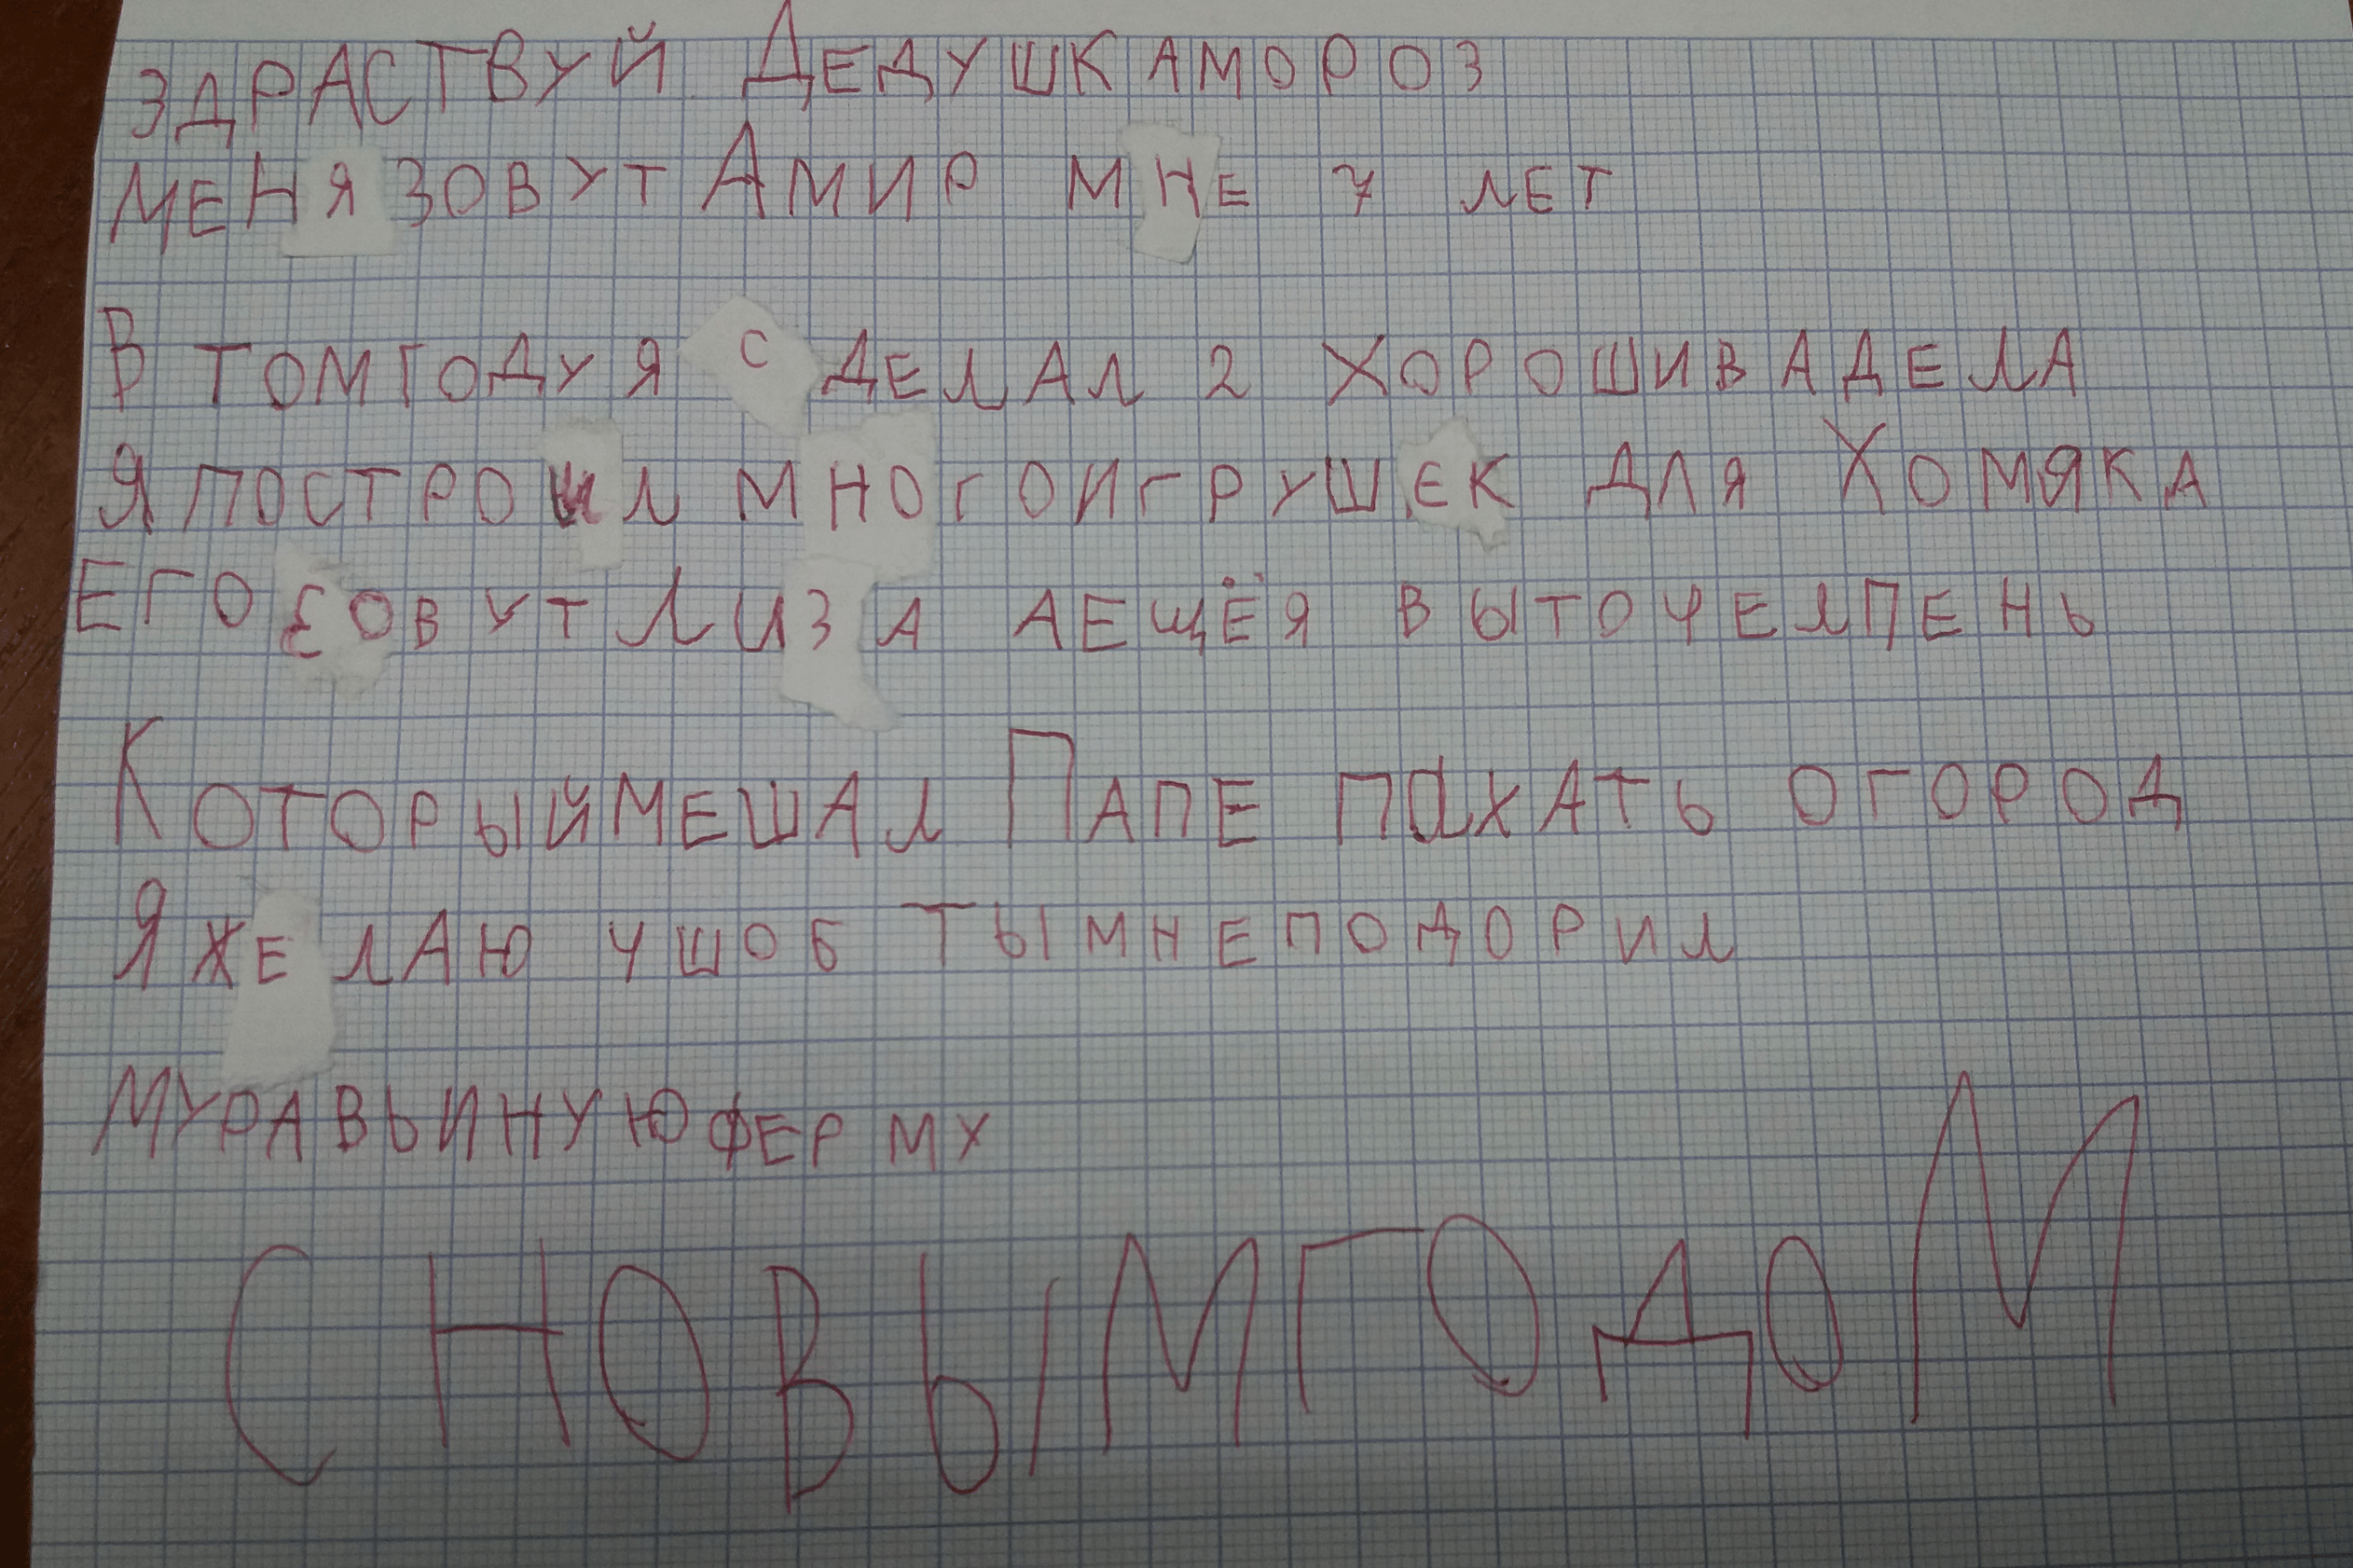 ЗДРАСТВУЙ ДЕДУШКА МОРОЗ
МЕНЯ ЗОВУТ АМИР МНЕ 7 ЛЕТ
В ТОМ ГОДУ Я СДЕЛАЛ 2 ХОРОШИВА ДЕЛА
Я ПОСТРОИЛ МНОГО ИГРУШЕК ДЛЯ ХОМЯКА
ЕГО ЗОВУТ ЛИЗА А ЕЩЁ Я ВЫТОЧЕЛ ПЕНЬ
КОТОРЫЙ МЕШАЛ ПАПЕ ПАХАТЬ ОГОРОД
Я ЖЕЛАЮ ЧШОБ ТЫ МНЕ ПОДОРИЛ
МУРАВЬИНУЮ ФЕРМУ
С НОВЫМ ГОДОМ